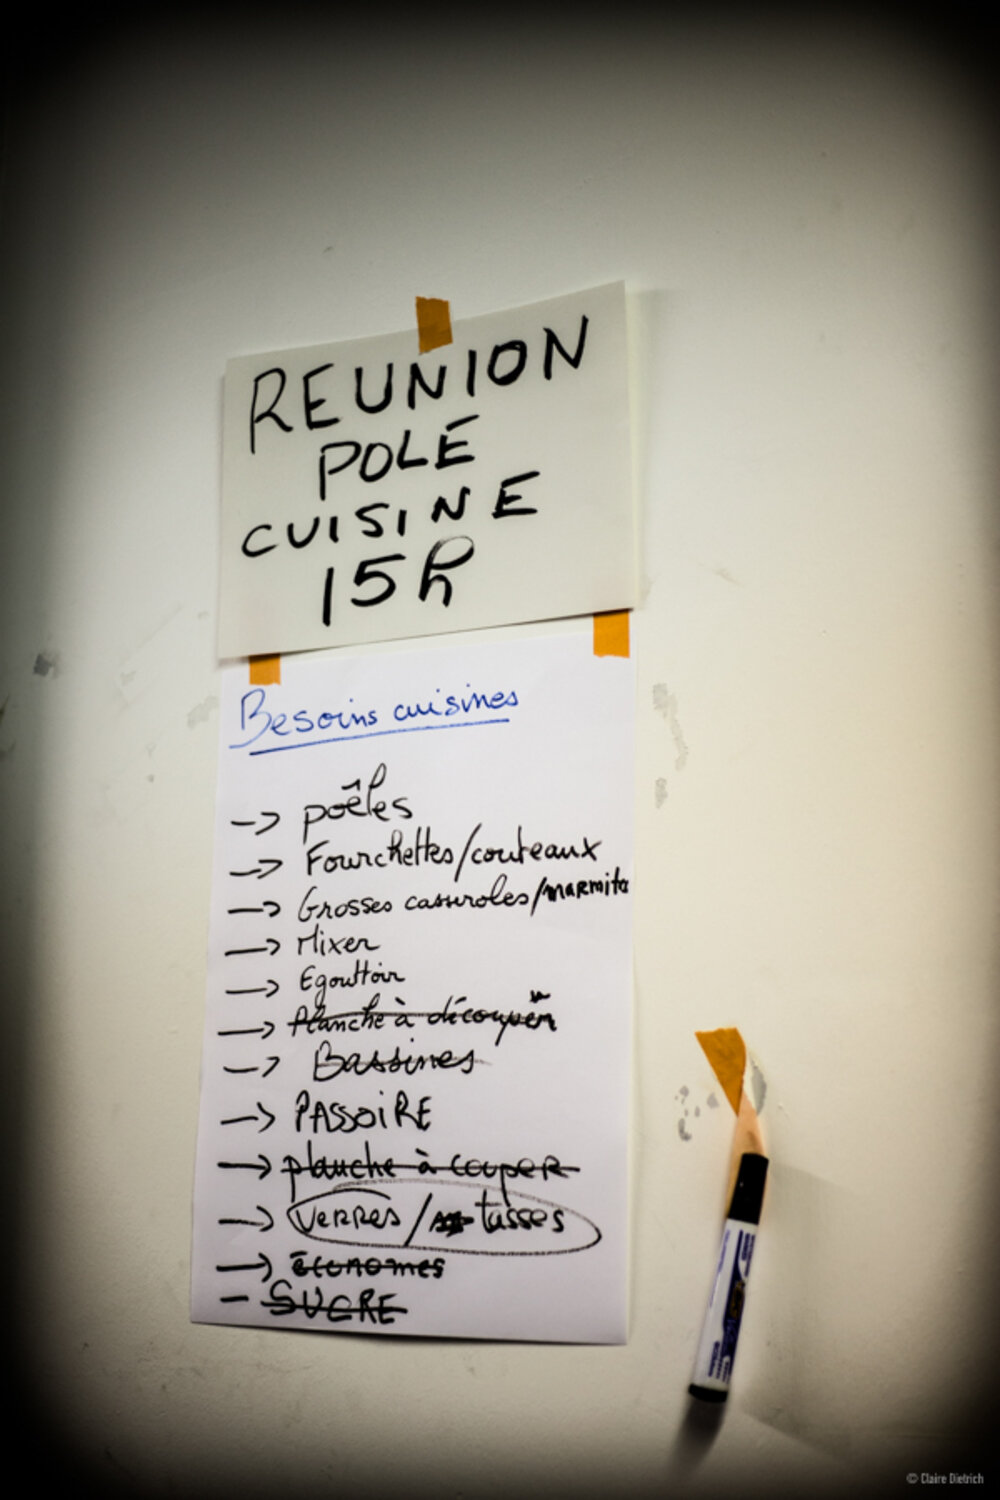 REUNION
POLE
CUISINE
15h
Besoins cuisines
-> poêles
-> Fourchettes/couteaux
-> Grosses casseroles/marmite
-> Mixer
-> Egouttoir
-> Planche à découper
-> Bassines
-> PASSOIRE
-> planche à couper
-> Verres / tasses
-> économes
- SUCRE
© Claire Dietrich